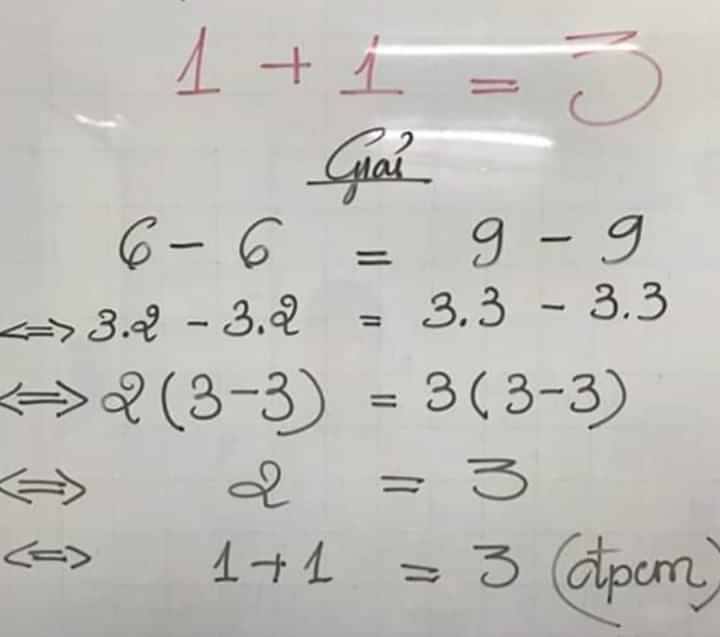 1 + 1 = 3
Giải
6 - 6 = 9 - 9
<=> 3.2 - 3.2 = 3.3 - 3.3
<=> 2(3-3) = 3(3-3)
<=> 2 = 3
<=> 1+1 = 3 (đpcm)